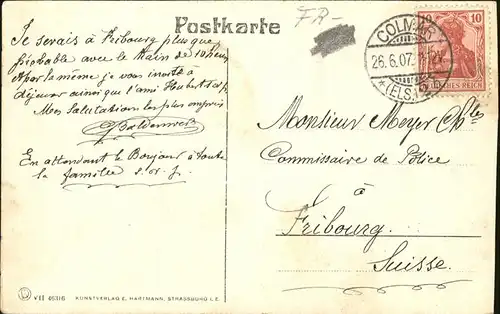 Postkarte
FR-
Je serais à Fribourg plus que
probable avec le train de 10 heur
Apar le même je vous invite à
déjeuner ainsi que l'ami Hubert
Mes Salutations les plus empris
En attendant le Bonjour à toute
la famille s. et. J.
COLMAR
26.6.07.
*(ELS.)
10
DEUTSCHES REICH
Monsieur Meyer Chles
Commissaire de Police
à
Fribourg.
Suisse.
VII 46316 KUNSTVERLAG E. HARTMANN, STRASSBURG I. E.